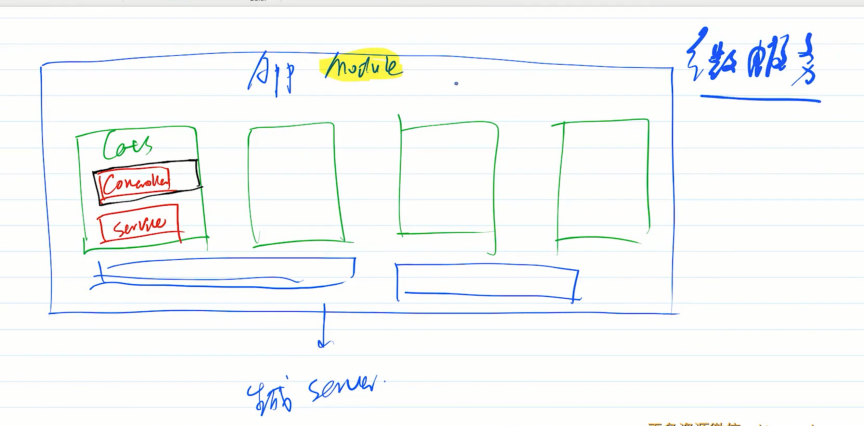 App Module
微服务
Cats
Controller
Service
生成 server.